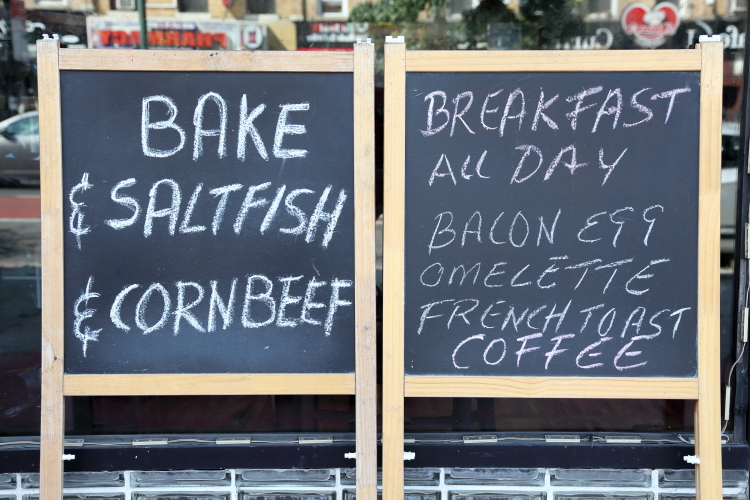 PHARMACY
BAKE
& SALTFISH
& CORNBEEF
BREAKFAST
ALL DAY
BACON EGG
OMELETTE
FRENCH TOAST
COFFEE